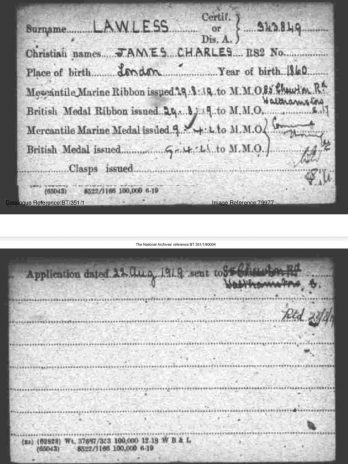 Surname LAWLESS Certif. or Dis. A. } 343849
Christian names JAMES CHARLES RS2 No.
Place of birth London Year of birth 1860
Mercantile Marine Ribbon issued 29.8.19 to M.M.O. 85 Chewton Rd
Walthamstow
British Medal Ribbon issued 29.8.19 to M.M.O. E.17
Mercantile Marine Medal issued 9.4.21 to M.M.O.
British Medal issued 9-4-21 to M.M.O.
Clasps issued
(65043) 8522/1166 100,000 6-19
Catalogue Reference:BT/351/1 Image Reference:79977
The National Archives' reference BT 351/1/80004
Application dated 22 Aug 1919 sent to 85 Chewton Rd
Walthamstow, E.
Rtd
(65043) 8522/1166 100,000 6-19